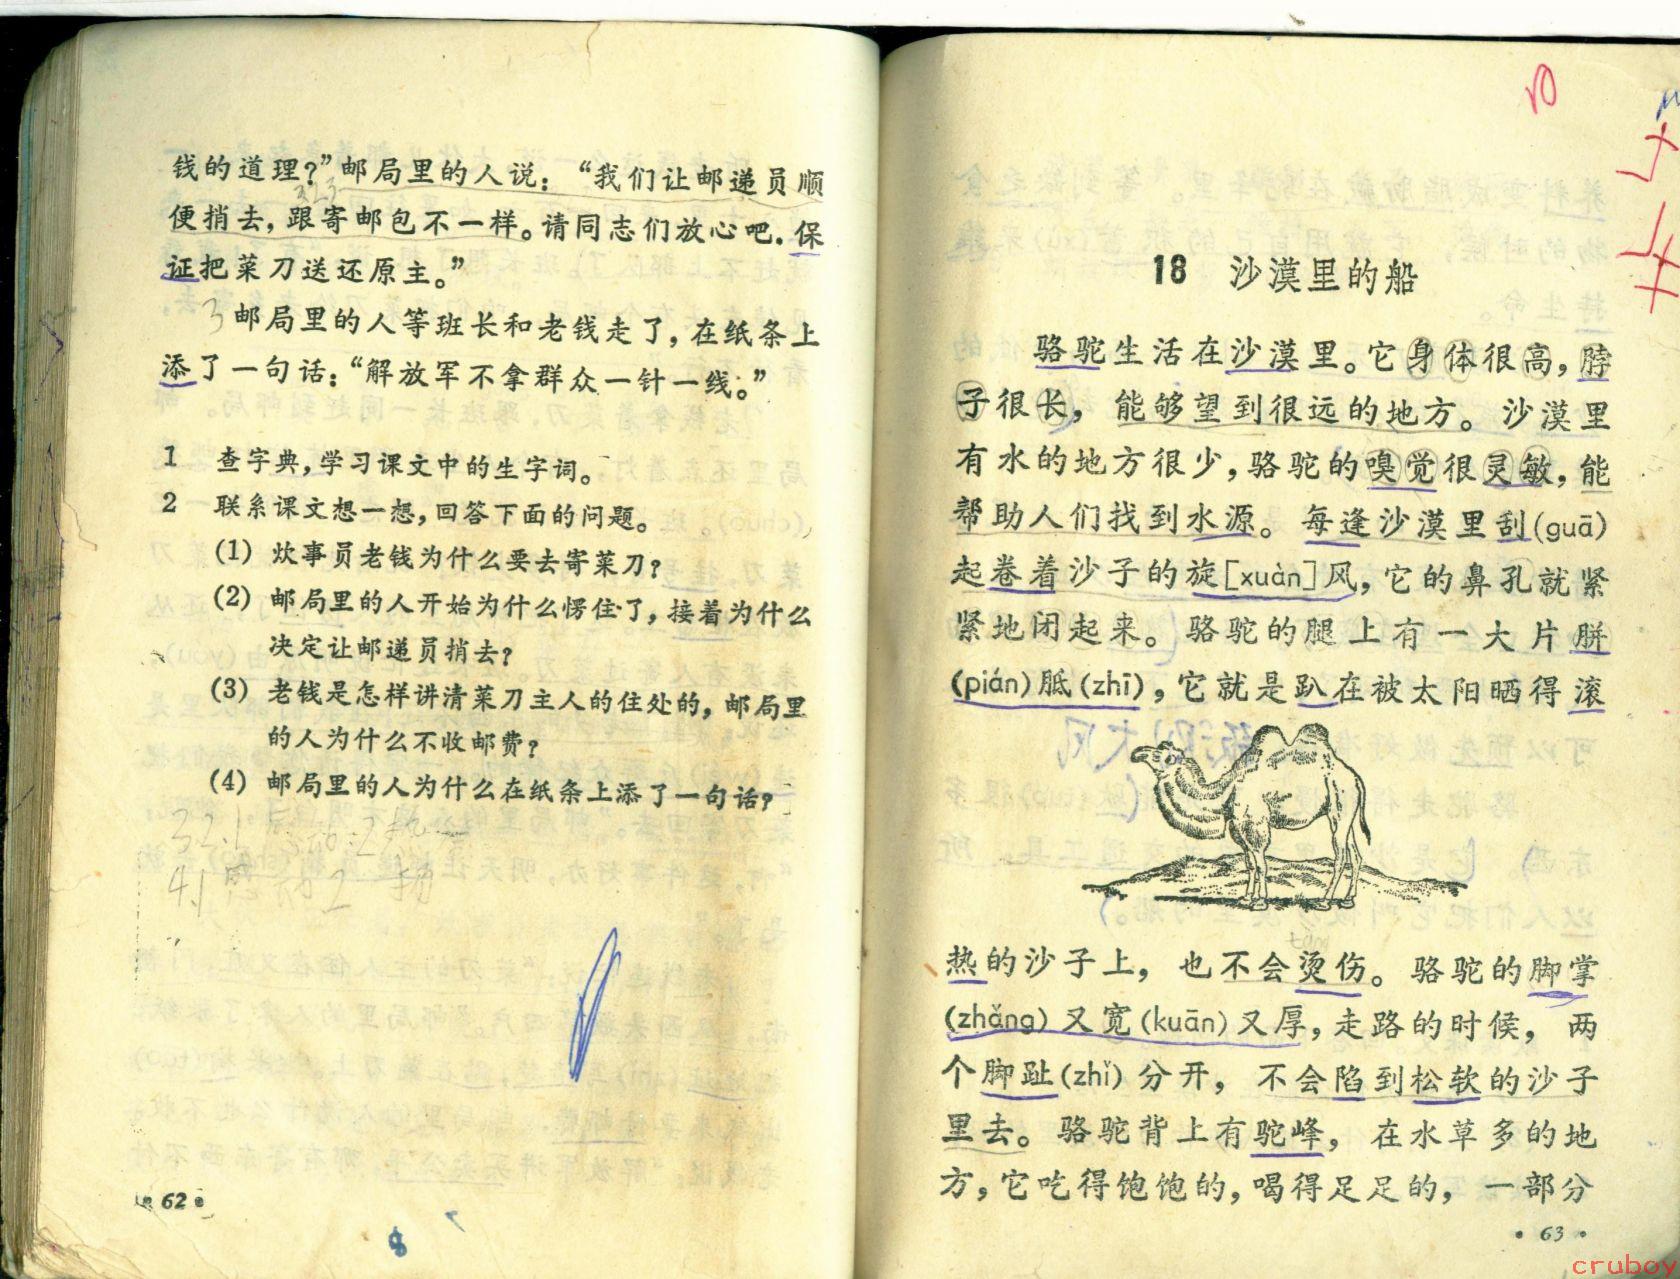 钱的道理？”邮局里的人说：“我们让邮递员顺
便捎去，跟寄邮包不一样。请同志们放心吧．保
证把菜刀送还原主。”
3 邮局里的人等班长和老钱走了，在纸条上
添了一句话：“解放军不拿群众一针一线。”
1 查字典，学习课文中的生字词。
2 联系课文想一想，回答下面的问题。
(1) 炊事员老钱为什么要去寄菜刀？
(2) 邮局里的人开始为什么愣住了，接着为什么
决定让邮递员捎去？
(3) 老钱是怎样讲清菜刀主人的住处的，邮局里
的人为什么不收邮费？
(4) 邮局里的人为什么在纸条上添了一句话？
62
18 沙漠里的船
骆驼生活在沙漠里。它身体很高，脖
子很长，能够望到很远的地方。沙漠里
有水的地方很少，骆驼的嗅觉很灵敏，能
帮助人们找到水源。每逢沙漠里刮(guā)
起卷着沙子的旋[xuàn]风，它的鼻孔就紧
紧地闭起来。骆驼的腿上有一大片胼
(pián)胝(zhī)，它就是趴在被太阳晒得滚
热的沙子上，也不会烫伤。骆驼的脚掌
(zhǎng)又宽(kuān)又厚，走路的时候，两
个脚趾(zhǐ)分开，不会陷到松软的沙子
里去。骆驼背上有驼峰，在水草多的地
方，它吃得饱饱的，喝得足足的，一部分
63
cruboy